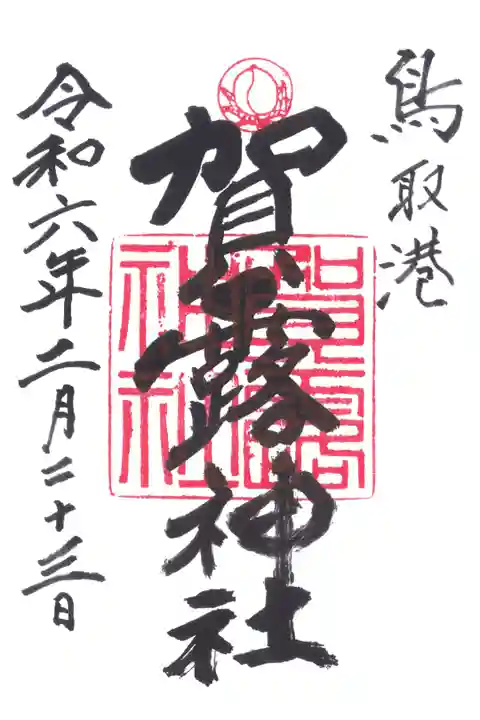 鳥取港
賀露神社
賀露
神社
令和六年二月二十三日